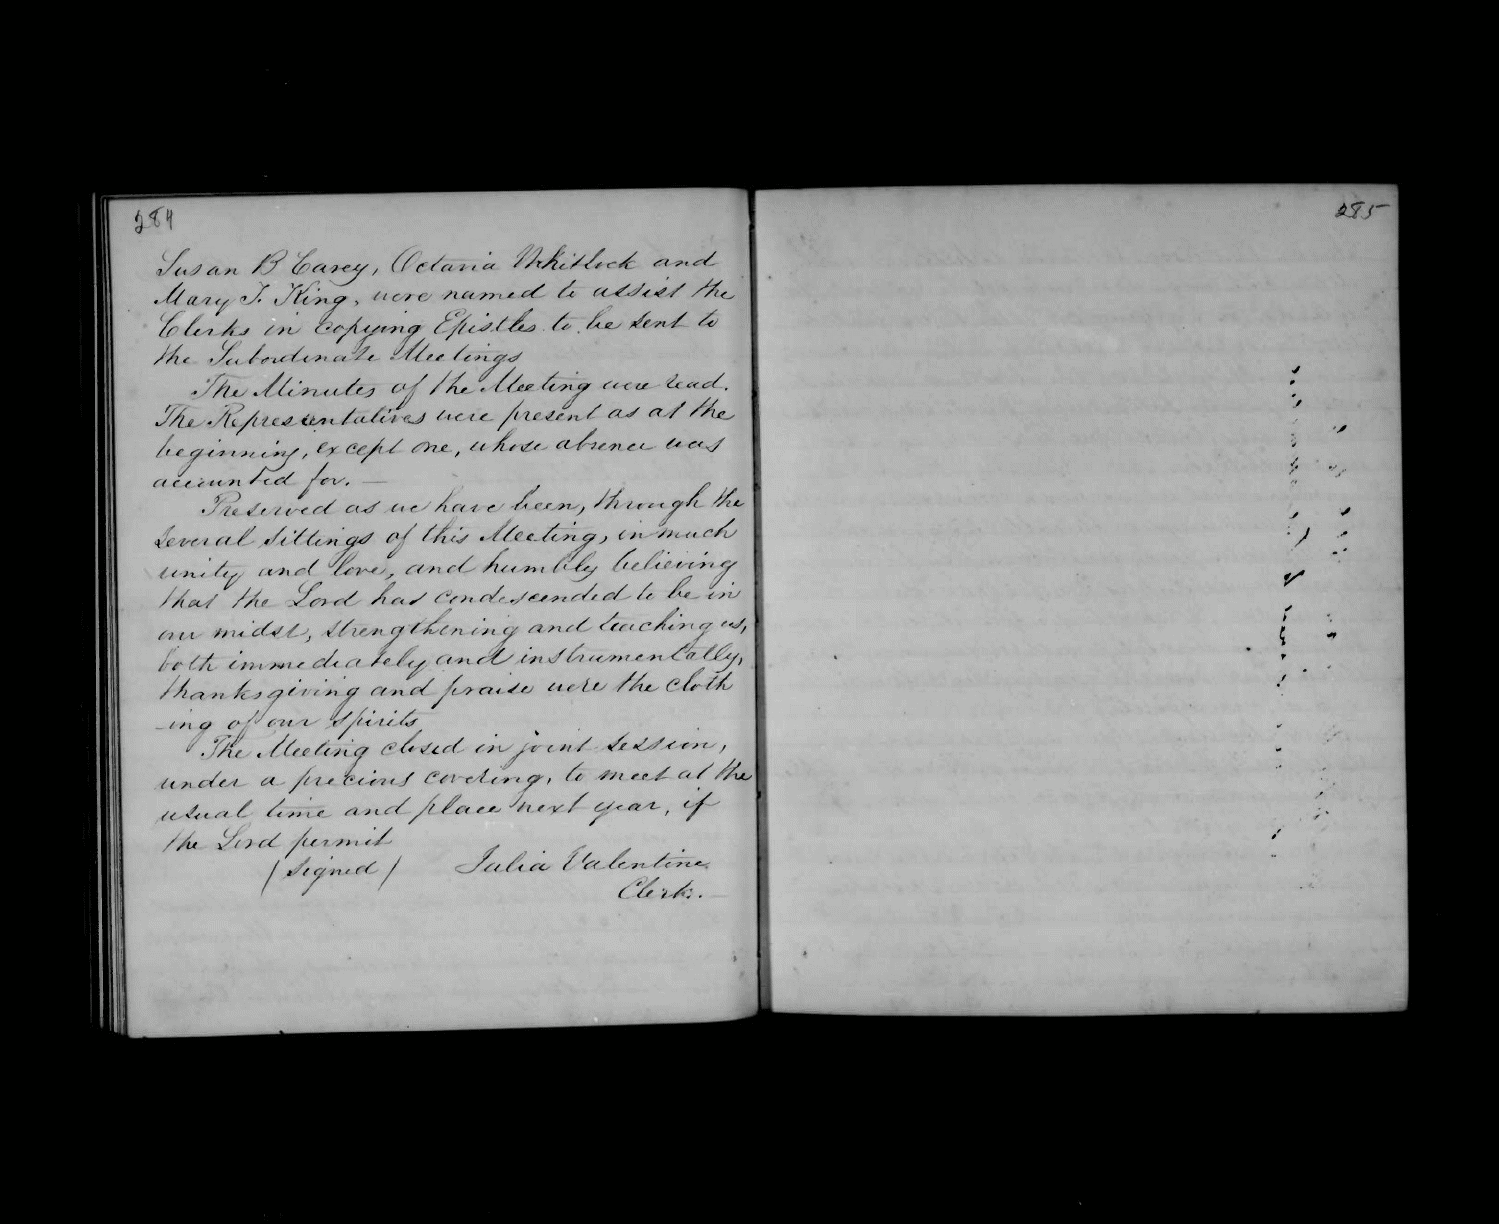 284
Susan B Carey, Octavia Whitlock and
Mary T. King, were named to assist the
Clerks in copying Epistles to be sent to
the Subordinate Meetings
The Minutes of the Meeting were read.
The Representatives were present as at the
beginning, except one, whose absence was
accounted for. —
Preserved as we have been, through the
several sittings of this Meeting, in much
unity and love, and humbly believing
that the Lord has condescended to be in
our midst, strengthening and teaching us,
both immediately and instrumentally,
thanksgiving and praise were the cloth
-ing of our spirits
The Meeting closed in joint session,
under a precious covering, to meet at the
usual time and place next year, if
the Lord permit
(Signed) Julia Valentine
Clerk. —
285